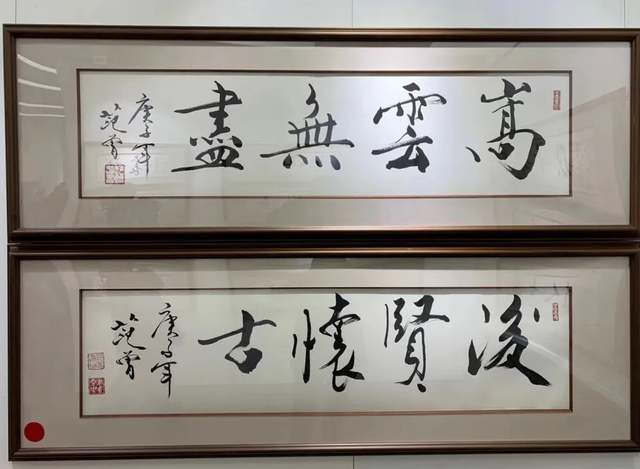 嵩雲無盡
庚子年
范曾
後賢懷古
庚子年
范曾